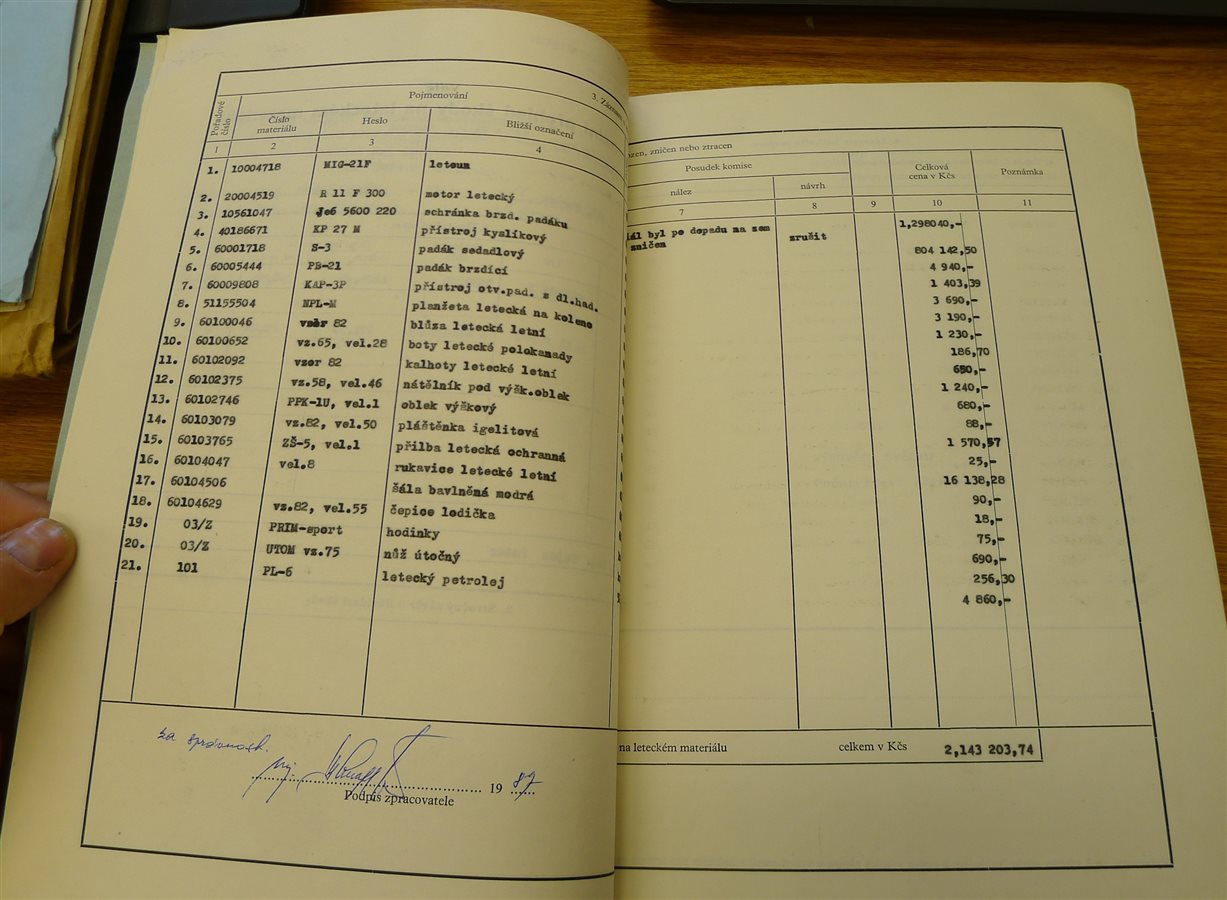 Pořadové číslo
Pojmenování
3. Záznam
Číslo materiálu
Heslo
Bližší označení
1 2 3 4
1. 10004718 MIG-21F letoun
2. 20004519 R 11 F 300 motor letecký
3. 10561047 Je6 5600 220 schránka brzd. padáku
4. 40186671 KP 27 M přístroj kyslíkový
5. 60001718 S-3 padák sedadlový
6. 60005444 PB-21 padák brzdící
7. 60009808 KAP-3P přístroj otv.pad. s dl.had.
8. 51155504 NPL-M planžeta letecká na koleno
9. 60100046 vzor 82 blůza letecká letní
10. 60100652 vz.65, vel.28 boty letecké polokanady
11. 60102092 vzor 82 kalhoty letecké letní
12. 60102375 vz.58, vel.46 nátělník pod výšk.oblek
13. 60102746 PPK-1U, vel.1 oblek výškový
14. 60103079 vz.82, vel.50 pláštěnka igelitová
15. 60103765 ZŠ-5, vel.1 přilba letecká ochranná
16. 60104047 vel.8 rukavice letecké letní
17. 60104506 šála bavlněná modrá
18. 60104629 vz.82, vel.55 čepice lodička
19. 03/Z PRIM-sport hodinky
20. 03/Z UTOM vz.75 nůž útočný
21. 101 PL-6 letecký petrolej
za správnost.
19 87
Podpis zpracovatele
ozen, zničen nebo ztracen
Posudek komise
Celková cena v Kčs
Poznámka
nález
návrh
7 8 9 10 11
iál byl po dopadu na zem zrušit 1,298040,-
zničen
804 142,50
4 940,-
1 403,39
3 690,-
3 190,-
1 230,-
186,70
650,-
1 240,-
680,-
88,-
1 570,57
25,-
16 138,28
90,-
18,-
75,-
690,-
256,30
4 860,-
na leteckém materiálu celkem v Kčs 2,143 203,74